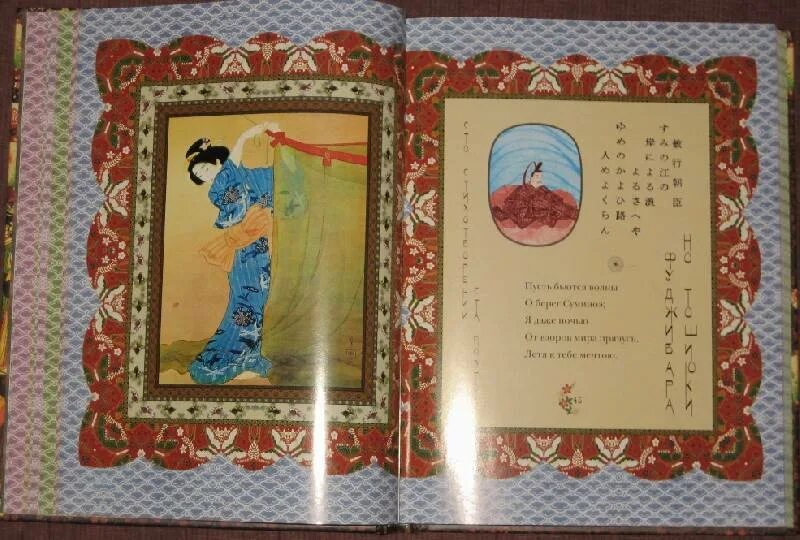 敏行朝臣
すみの江の
岸による浪
よるさへや
ゆめのかよひ路
人めよくらん
СТО СТИХОТВОРЕНИЙ
СТА
ФУДЖИВАРА
НО ТОШИЮКИ
Пусть бьются волны
О берег Суминоэ,
Я даже ночью
От взоров мира прячусь,
Летя к тебе мечтою.